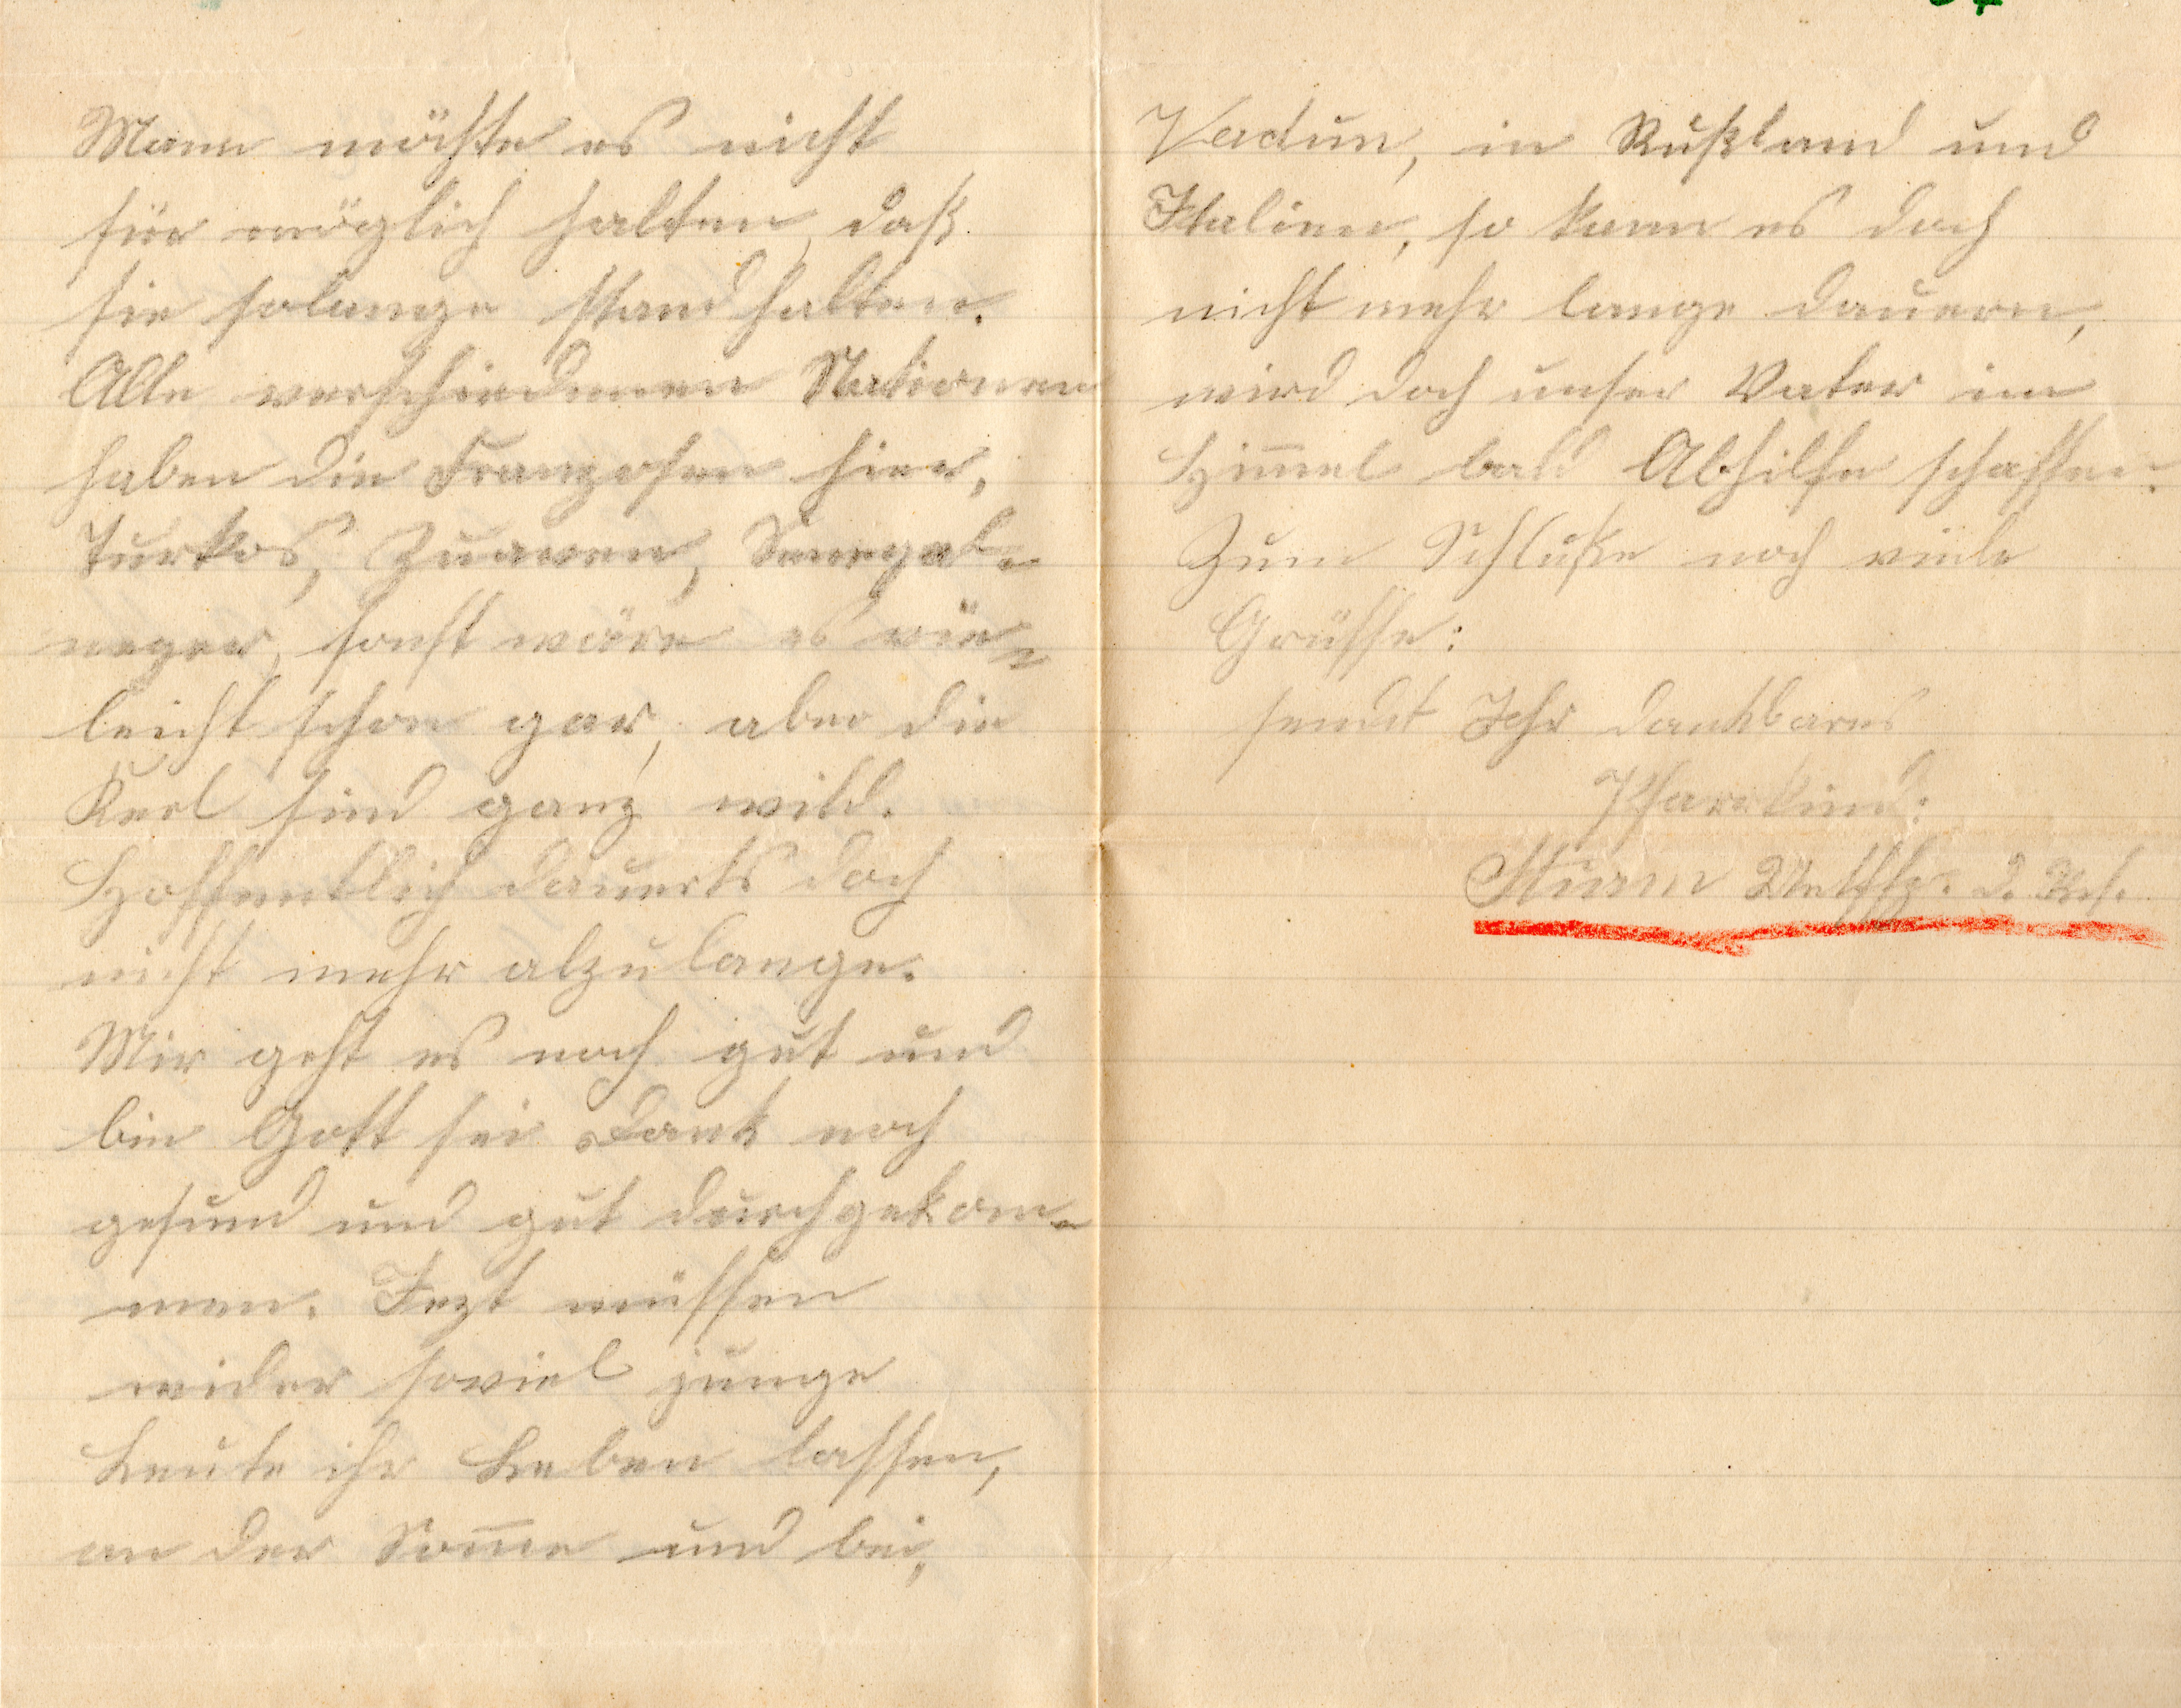 Mann möchte es nicht
für möglich halten, daß
sie solange stand halten.
Alle verschiedenen Nationen
haben die Franzosen hier,
Turkos, Zuaven, Senegal-
neger, sonst wäre es vie-
leicht schon gar, aber die
Kerl sind ganz wild.
Hoffentlich dauerts doch
nicht mehr alzulange.
Mir geht es noch gut und
bin Gott sei Dank noch
gesund und gut durchgekom-
men. Jezt müssen
wider soviel junge
Leute ihr Leben lassen,
an der Som̅e und bei,
Verdun, in Rußland und
Italien, so kann es doch
nicht mehr lange dauern,
wird doch unser Vater im
Him̅el bald Abhilfe schaffen.
Zum Schluße noch viele
Grüsse:
sendt Ihr dankbares
Pfarrkind:
Sturm Untffz. d. Res.